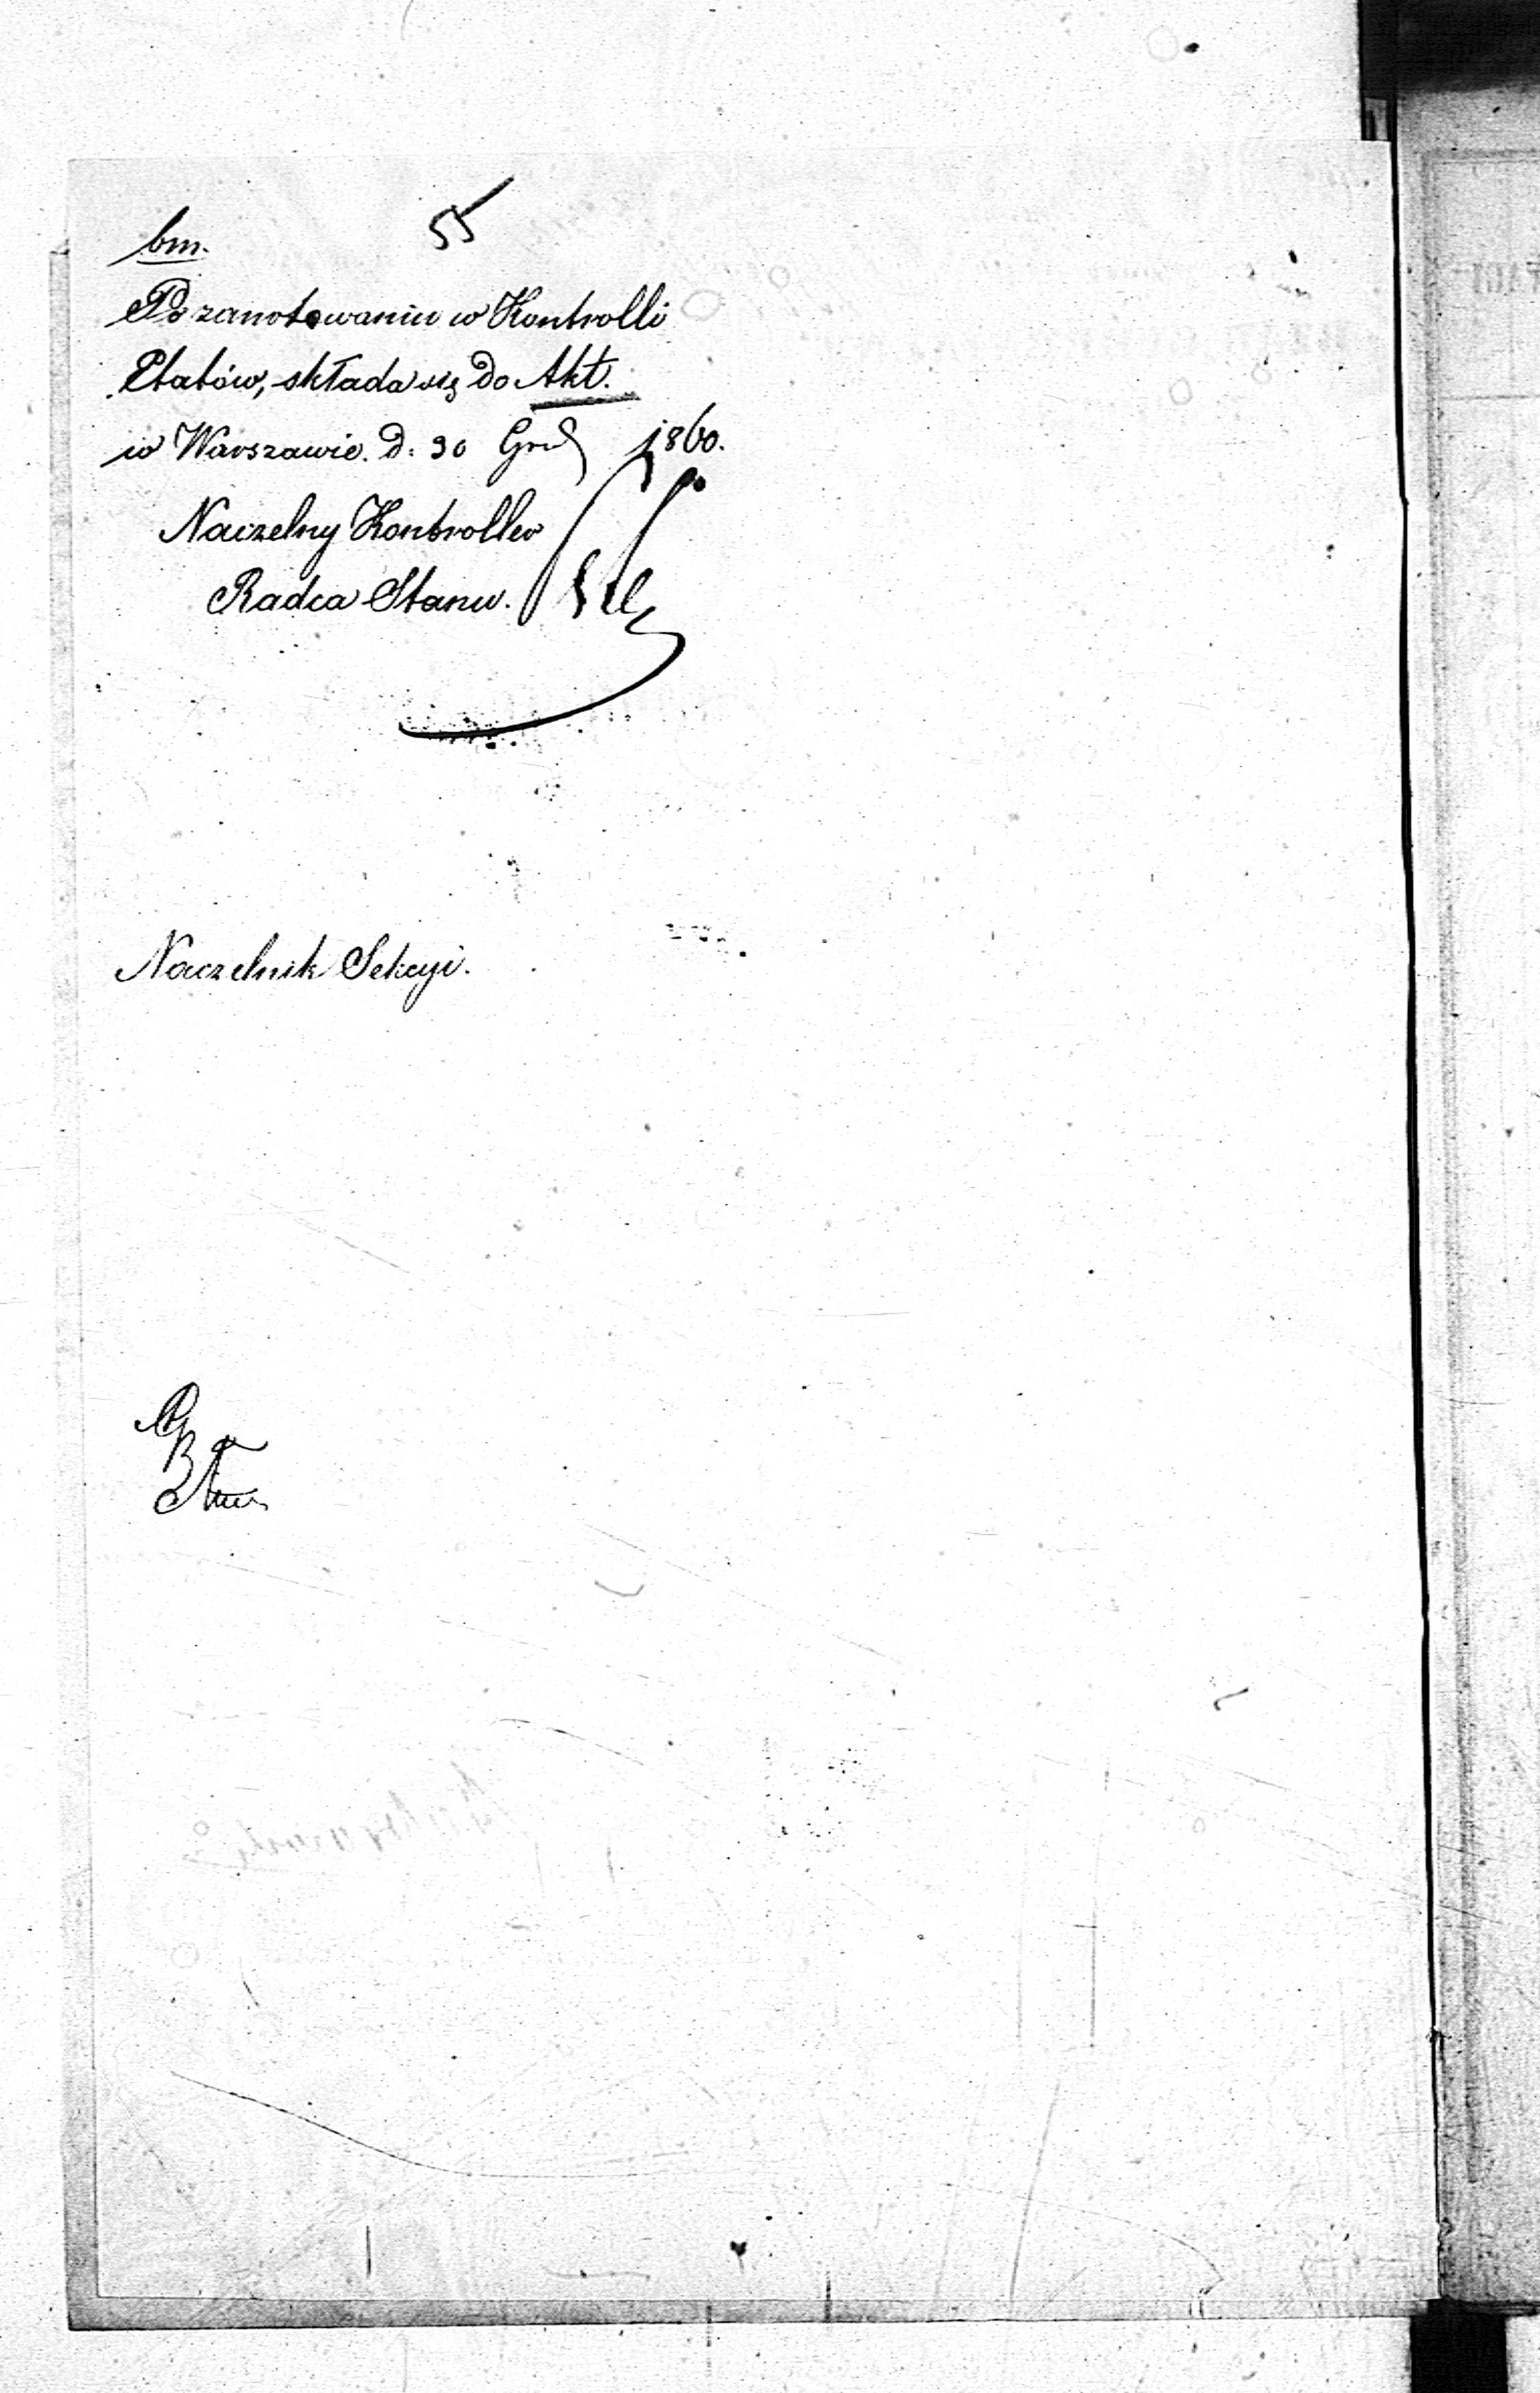 55
bm.
Po zanotowaniu w Kontrolli
Etatów, składa się do Akt.
w Warszawie. d: 30 Gru 1860.
Naczelny Kontroller
Radca Stanu.
Naczelnik Sekcyi.